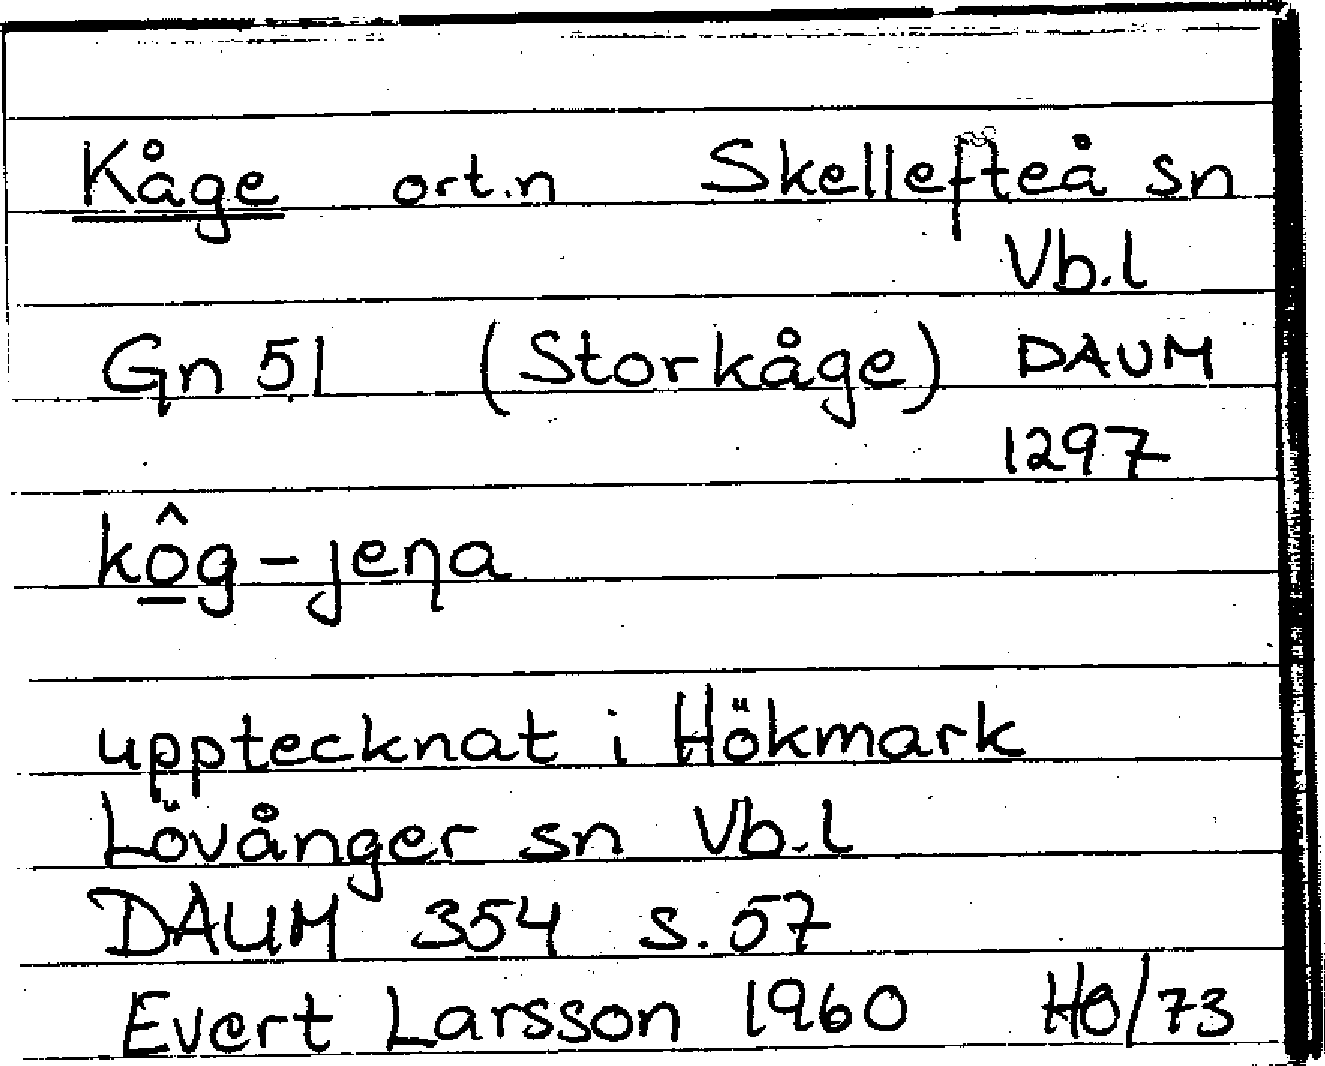 Kåge ort.n Skellefteå sn
Vb.l
Gn 51 (Storkåge) DAUM
1297
kô̱g-jeŋa
upptecknat i Hökmark
Lövånger sn Vb.l
DAUM 354 s. 57
Evert Larsson 1960 HO/73